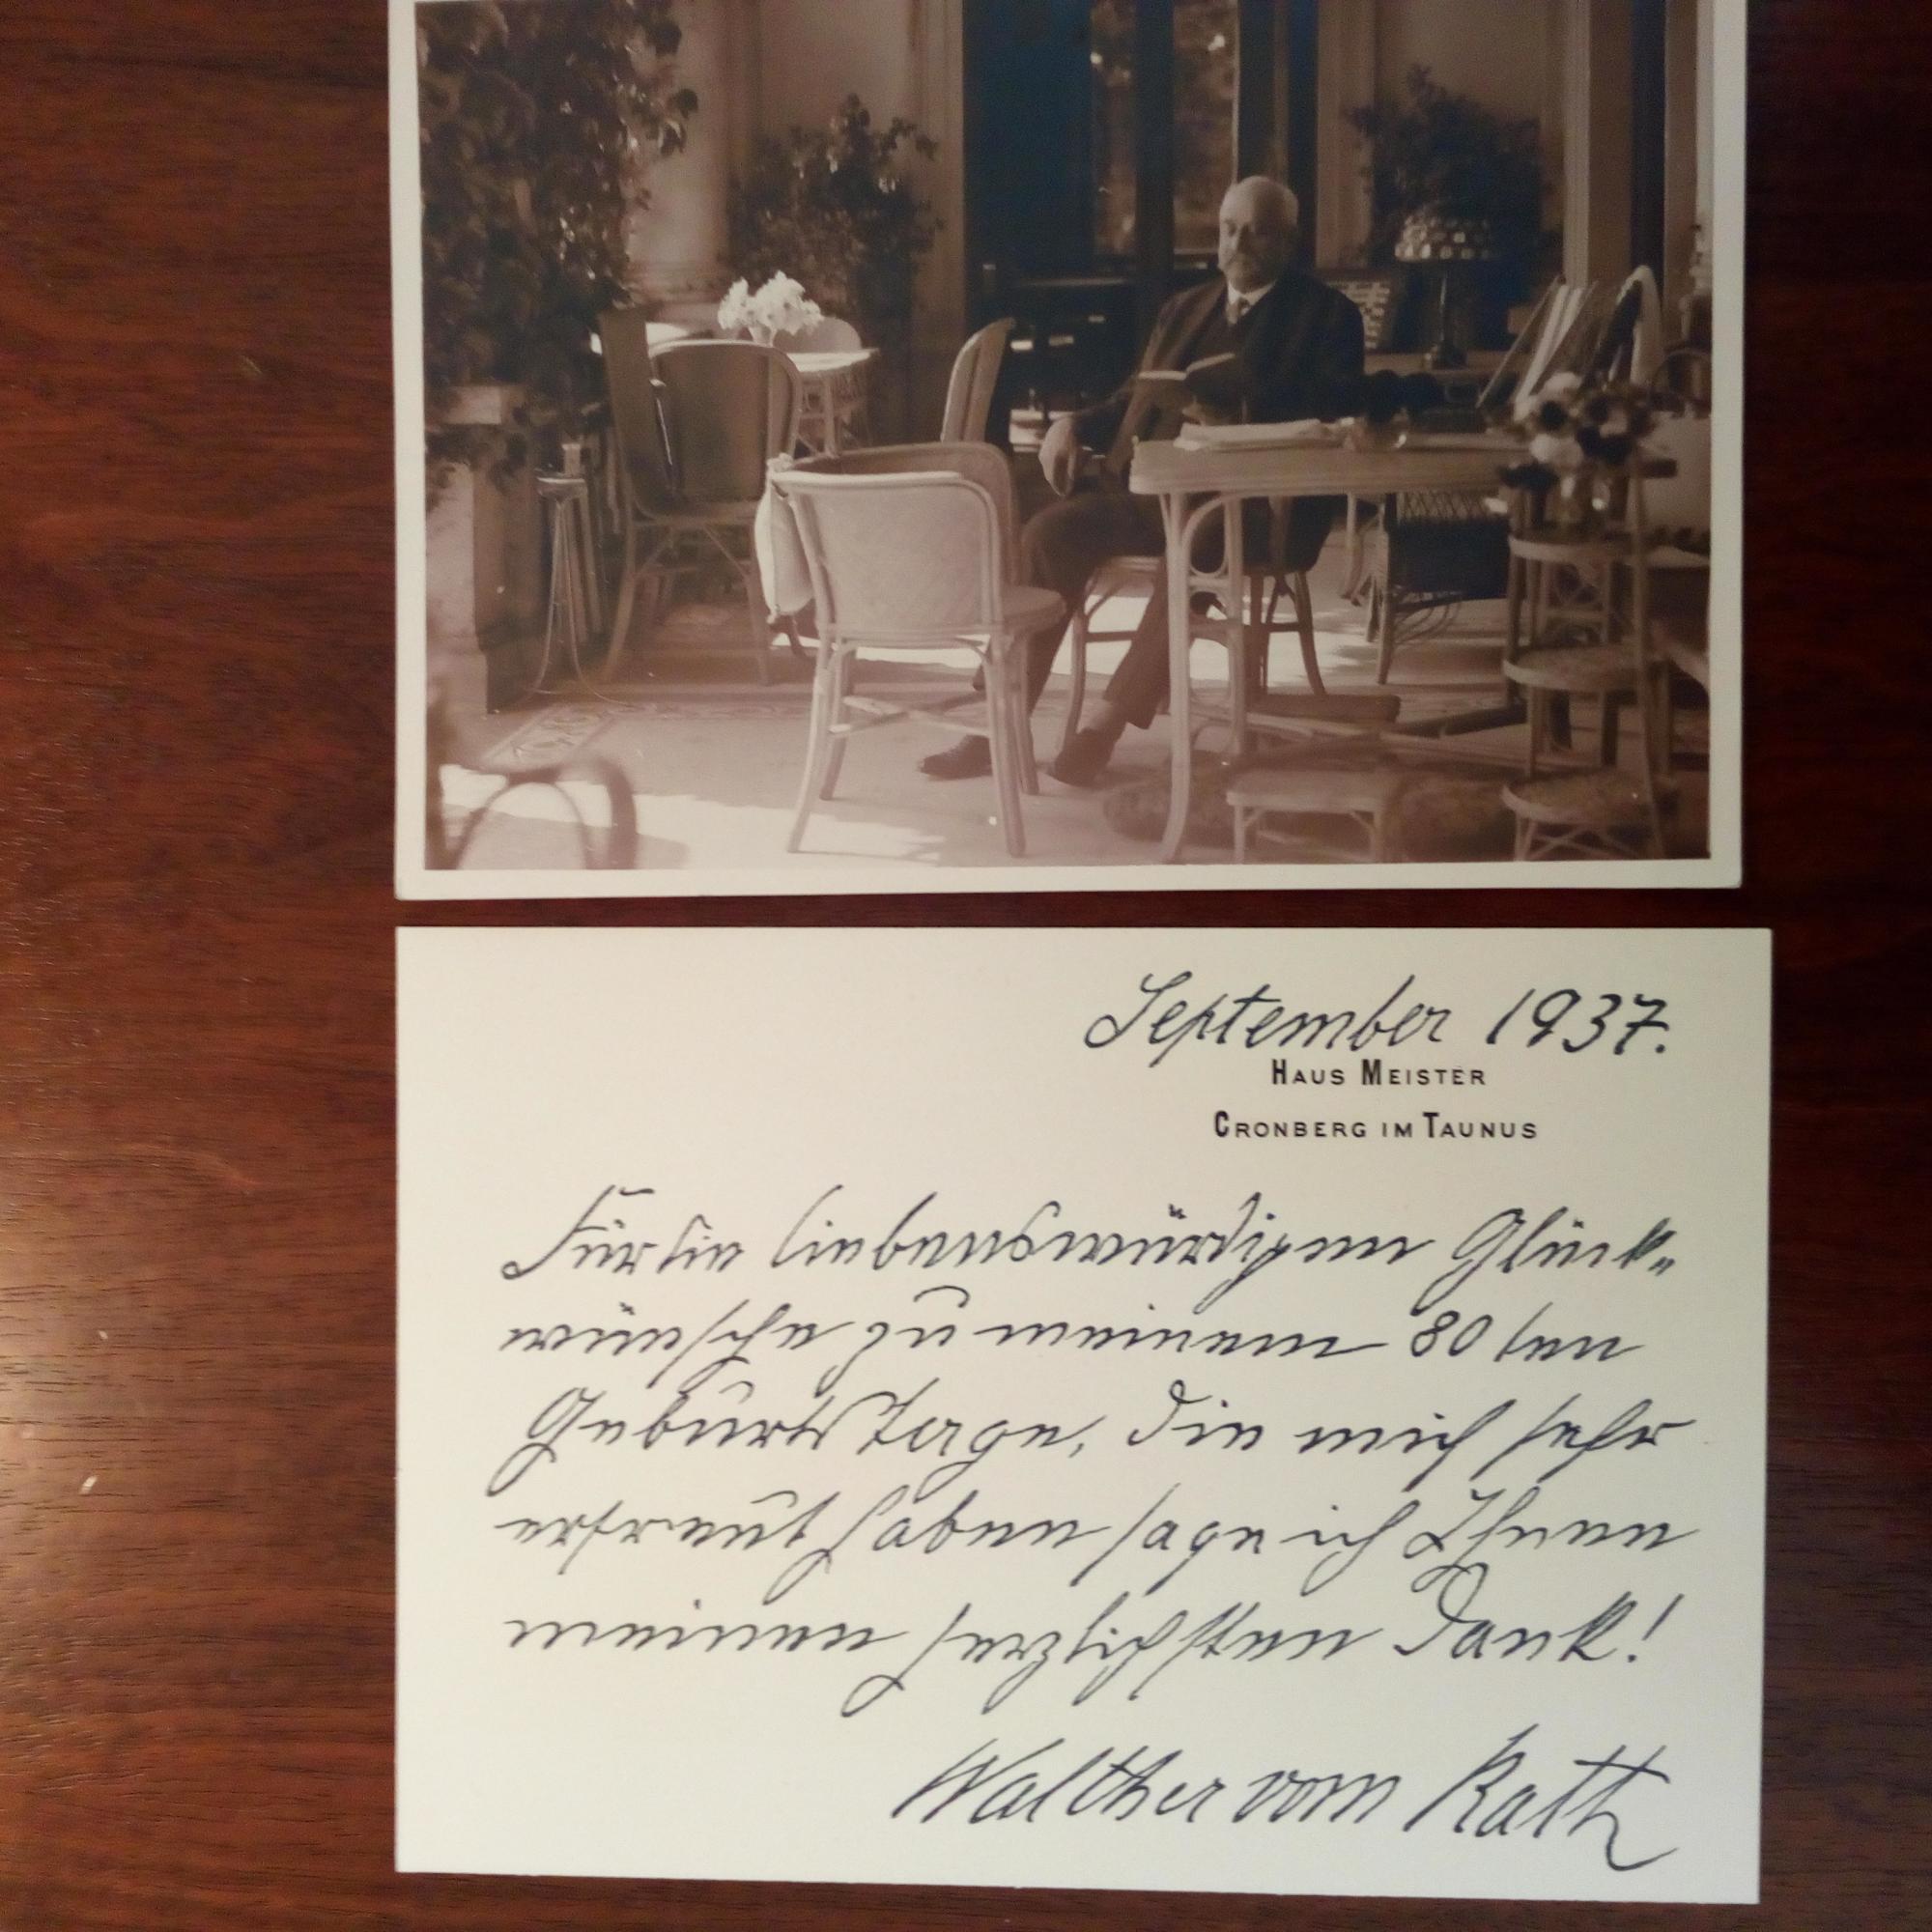 September 1937.
HAUS MEISTER
CRONBERG IM TAUNUS
Für die liebenswürdigen Glück-
wünsche zu meinem 80ten
Geburtstage, die mich sehr
erfreut haben sage ich Ihnen
meinen herzlichsten Dank!
Walther vom Rath